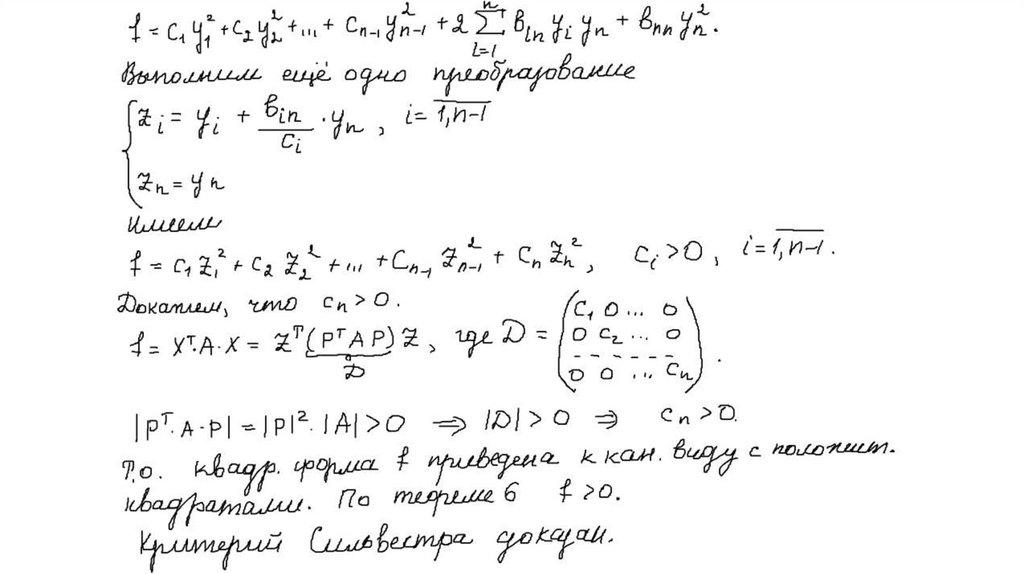 f = c₁y₁² + c₂y₂² + ... + cₙ₋₁y²ₙ₋₁ + 2 ∑ᵢ₌₁ⁿ bᵢₙ yᵢ yₙ + bₙₙ yₙ².
Выполним ещё одно преобразование
{ zᵢ = yᵢ + bᵢₙ/cᵢ · yₙ, i = 1,n-1
zₙ = yₙ
Имеем
f = c₁z₁² + c₂z₂² + ... + cₙ₋₁z²ₙ₋₁ + cₙzₙ², cᵢ > 0, i = 1,n-1.
Докажем, что cₙ > 0.
f = Xᵀ·A·X = Zᵀ(PᵀAP)Z, где D = (c₁ 0 ... 0
0 c₂ ... 0
- - - - - - -
0 0 ... cₙ).
D
|Pᵀ·A·P| = |P|²·|A| > 0 ⇒ |D| > 0 ⇒ cₙ > 0.
Т.о. квадр. форма f приведена к кан. виду с положит.
квадратами. По теореме 6 f > 0.
Критерий Сильвестра доказан.